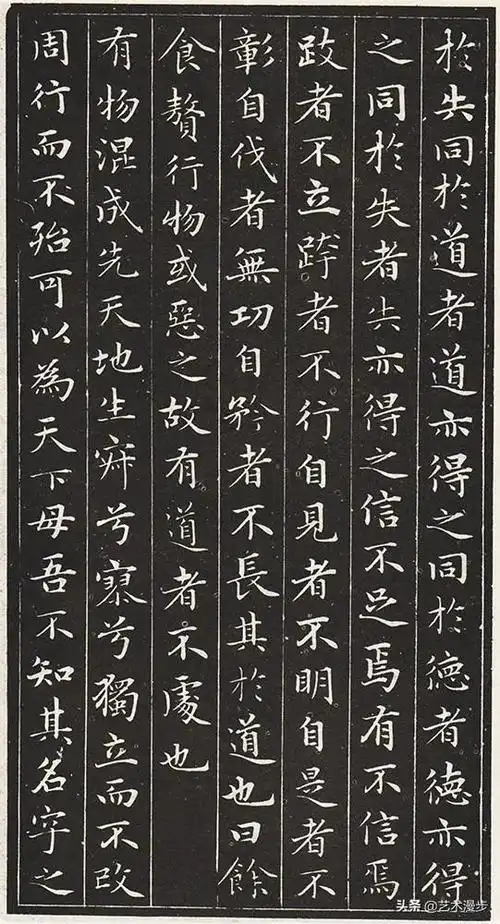 於失同於道者道亦得之同於徳者徳亦得
之同於失者失亦得之信不足焉有不信焉
跂者不立跨者不行自見者不明自是者不
彰自伐者無功自矜者不長其於道也曰餘
食贅行物或惡之故有道者不處也
有物混成先天地生寂兮寥兮獨立而不改
周行而不殆可以為天下母吾不知其名字之
头条 @艺术漫步